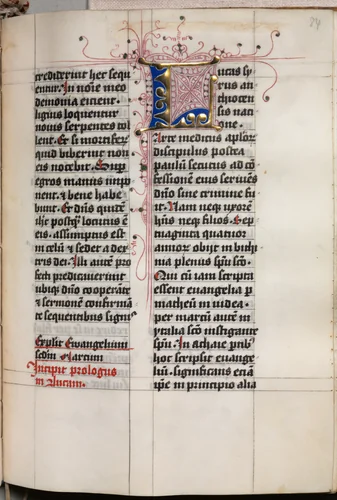 84
crediderint hec sequ
entur. In noīe meo
demonia eicient.
liguis loquentur
nouis serpentes tol
lent. Et si mortifeꝝ
quid biberint non
eis nocebit. Sup
egros manus imp
nent. ⁊ bene habe
bunt. Et dn̄s quidē
ih̄c postq̄ locutus ē
eis. assumptus est
in celū ⁊ sedet a dex
tris dei. Illi autē pro
fecti predicauerunt
ubiq; dn̄o cooperāte
⁊ sermonē confirmā
te sequentibus signis
Explicit Ewangelium
scdm Marcum
Incipit prologus
in Lucam.
Lucas sy
rus an
thiocen
sis nati
one.
Arte medicus apl̄oꝝ
discipulus postea
paulū secutus ad cō
fessionem eius seruiēs
dn̄o sine crimine fu
it. Nam neqꝫ uxorē
h̄ns neqꝫ filios. Sep
tuaginta quatuor
annoꝝ obijt in bithi
nia plenus sp̄u sc̄o.
Qui cū iam scripta
essent euangelia p
matheū in iudea.
per marcū autē in
ytalia sc̄o instigante
sp̄u. In achaie ptib̄
hoc scripsit euange
liū. significans eciā
ip̄e in principio alia